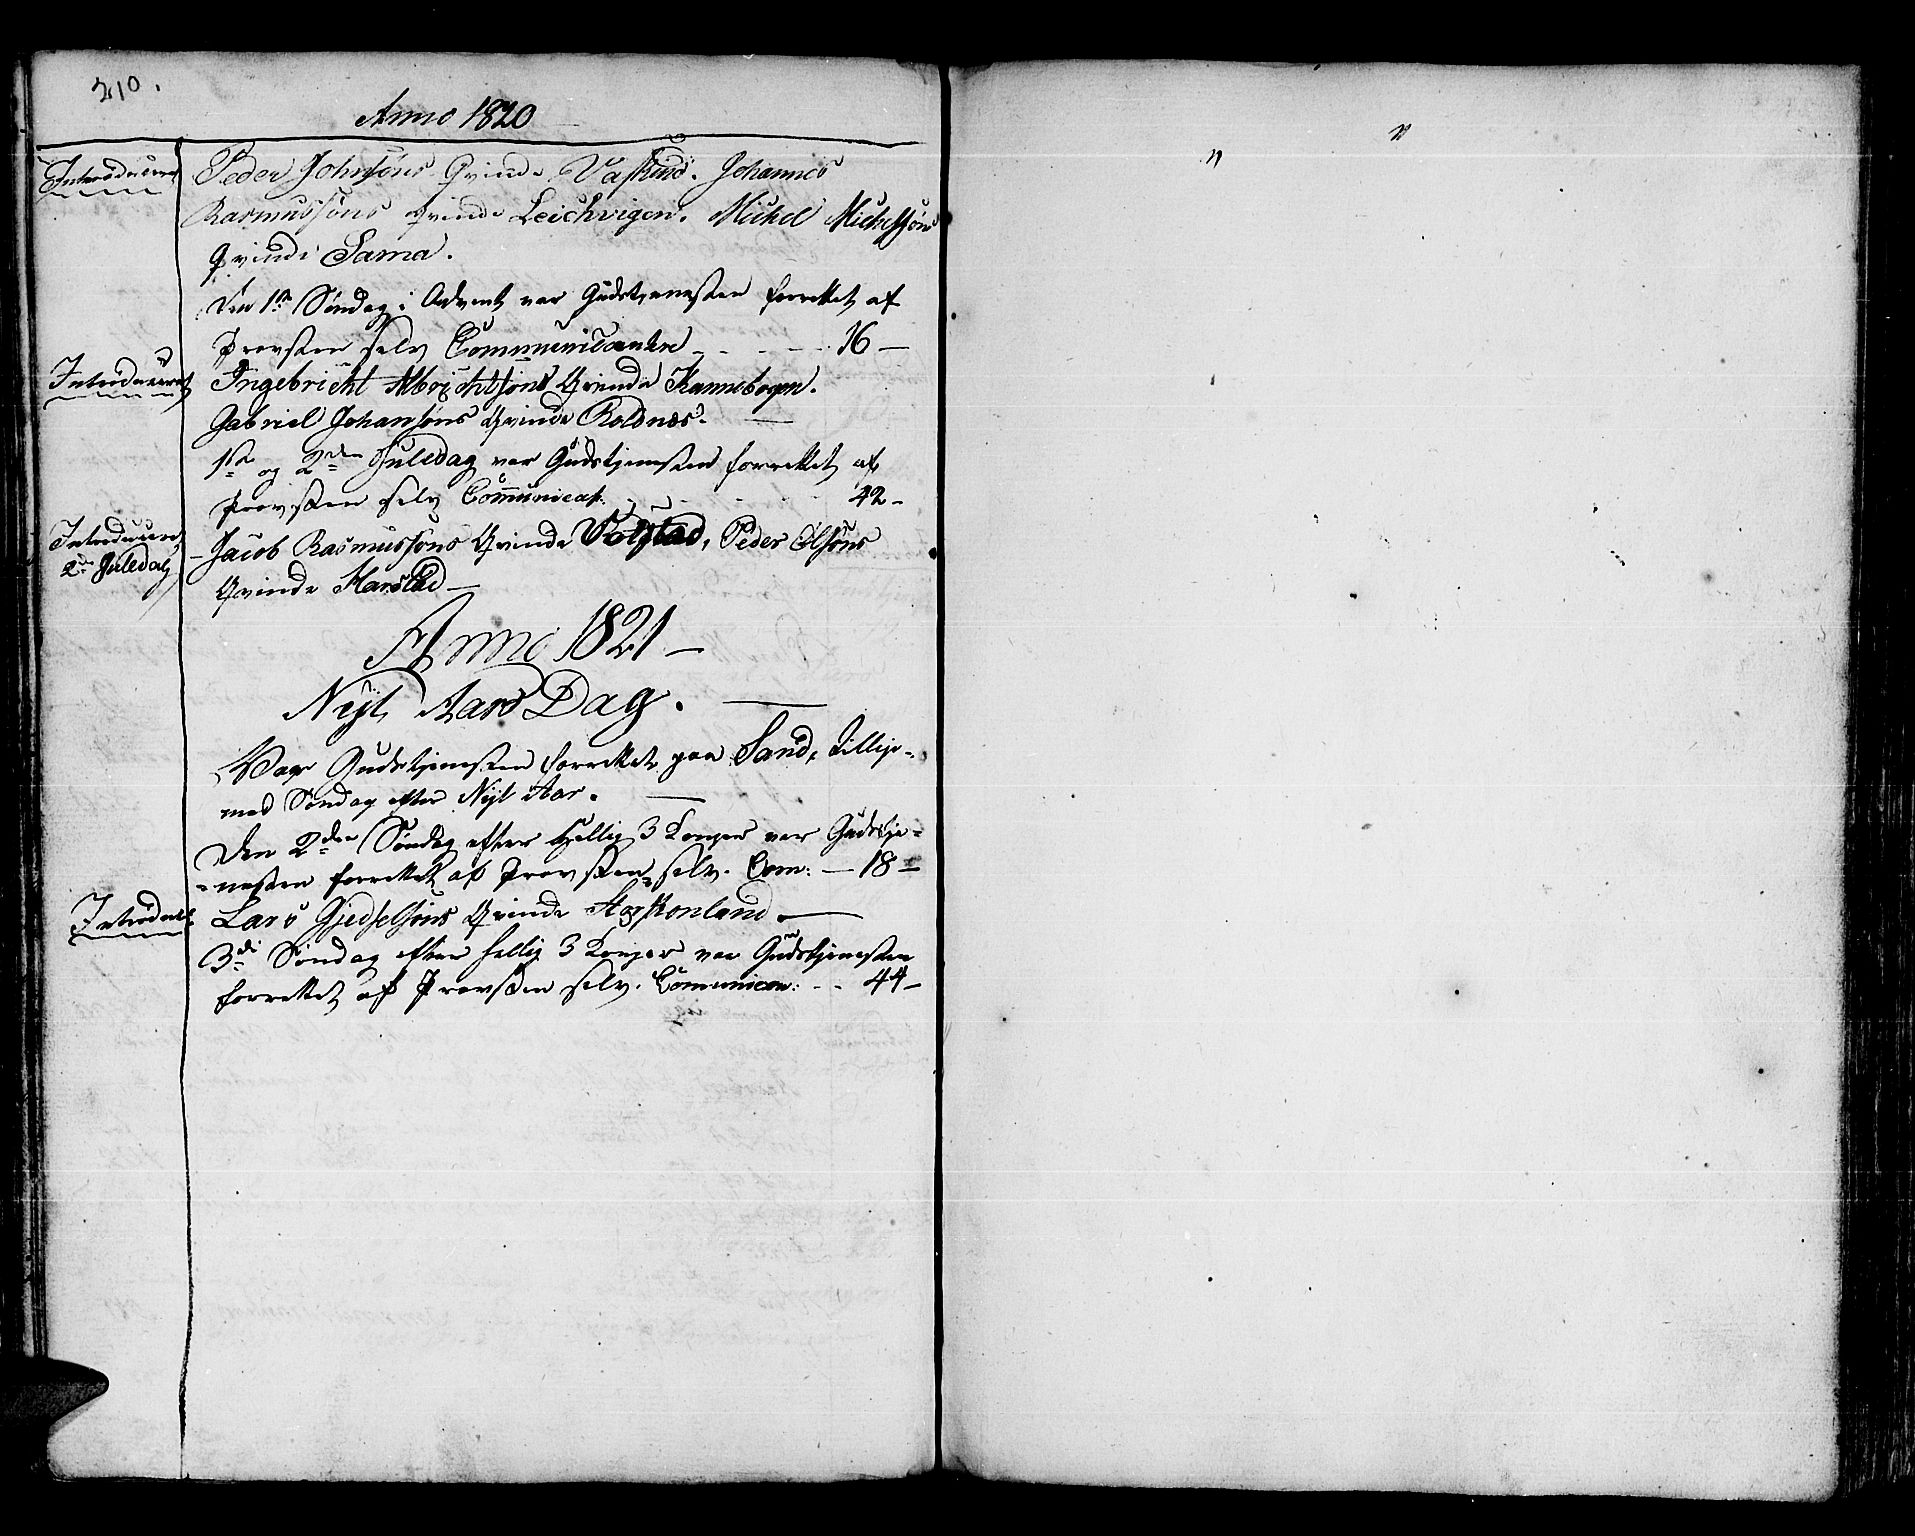 210.
Anno 1820
Introduceret Peder Johnsøns Qvinde Vasrud. Johannes
Rasmussøns Qvinde Leichvigen. Michel Michelsøns
Qvinde Sama.
Den 1ste Søndag i Advent var Gudstjenesten forrettet af
Provsten selv Communicantere - - - - 16 -
Introduceret Ingebricht Albrichtsøns Qvinde Kannebogen.
Gabriel Johansøns Qvinde Roldnæs. —
1ste og 2den Juledag var Gudstjenesten forrettet af
Provsten selv Communicat. - - - 42 -
Introduceret 2den Juledag
- Jacob Rasmussøns Qvinde Volstad, Peder Olsøns
Qvinde Harstad —
Anno 1821 —
Nyt Aars Dag. —
Var Gudstjenesten forrettet paa Sand, tillige-
med Søndag efter Nyt Aar. —
Den 2den Søndag efter Hellig 3 Konger var Gudstje=
=nesten forrettet af Provsten selv. Com: — 18 =
Introducet Lars Gjedselsøns Qvinde —
3die Søndag efter hellig 3 Konger var Gudstjenesten
forrettet af Provsten selv. Comunican: - - 44 -